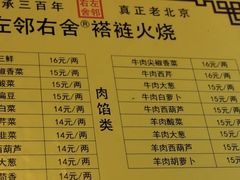 承三百年 左邻右舍 真正老北京
左邻右舍® 褡裢火烧
三鲜 16元/两
椒香菜 15元/两
酸菜 15元/两
扁豆 15元/两
大葱 14元/两
西葫芦 14元/两
大葱 14元/两
茴香 14元/两
肉馅类
牛肉尖椒香菜 15元/两
牛肉西芹 15元/两
牛肉大葱 15元/两
牛肉白萝卜 15元/两
羊肉酸菜 15元/两
羊肉大葱 15元/两
羊肉西葫芦 15元/两
羊肉胡萝卜 15元/两